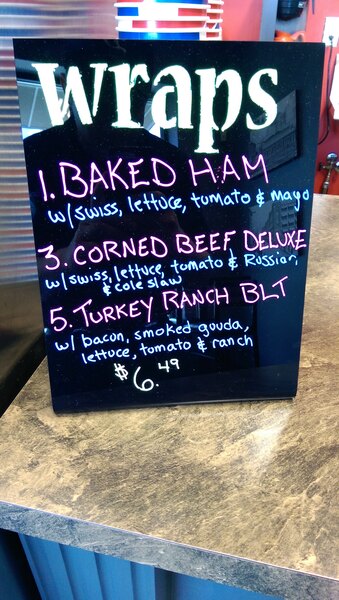 wraps
1. BAKED HAM
w/swiss, lettuce, tomato & mayo
3. CORNED BEEF DELUXE
w/swiss, lettuce, tomato & Russian,
& cole slaw
5. TURKEY RANCH BLT
w/ bacon, smoked gouda,
lettuce, tomato & ranch
$6.49